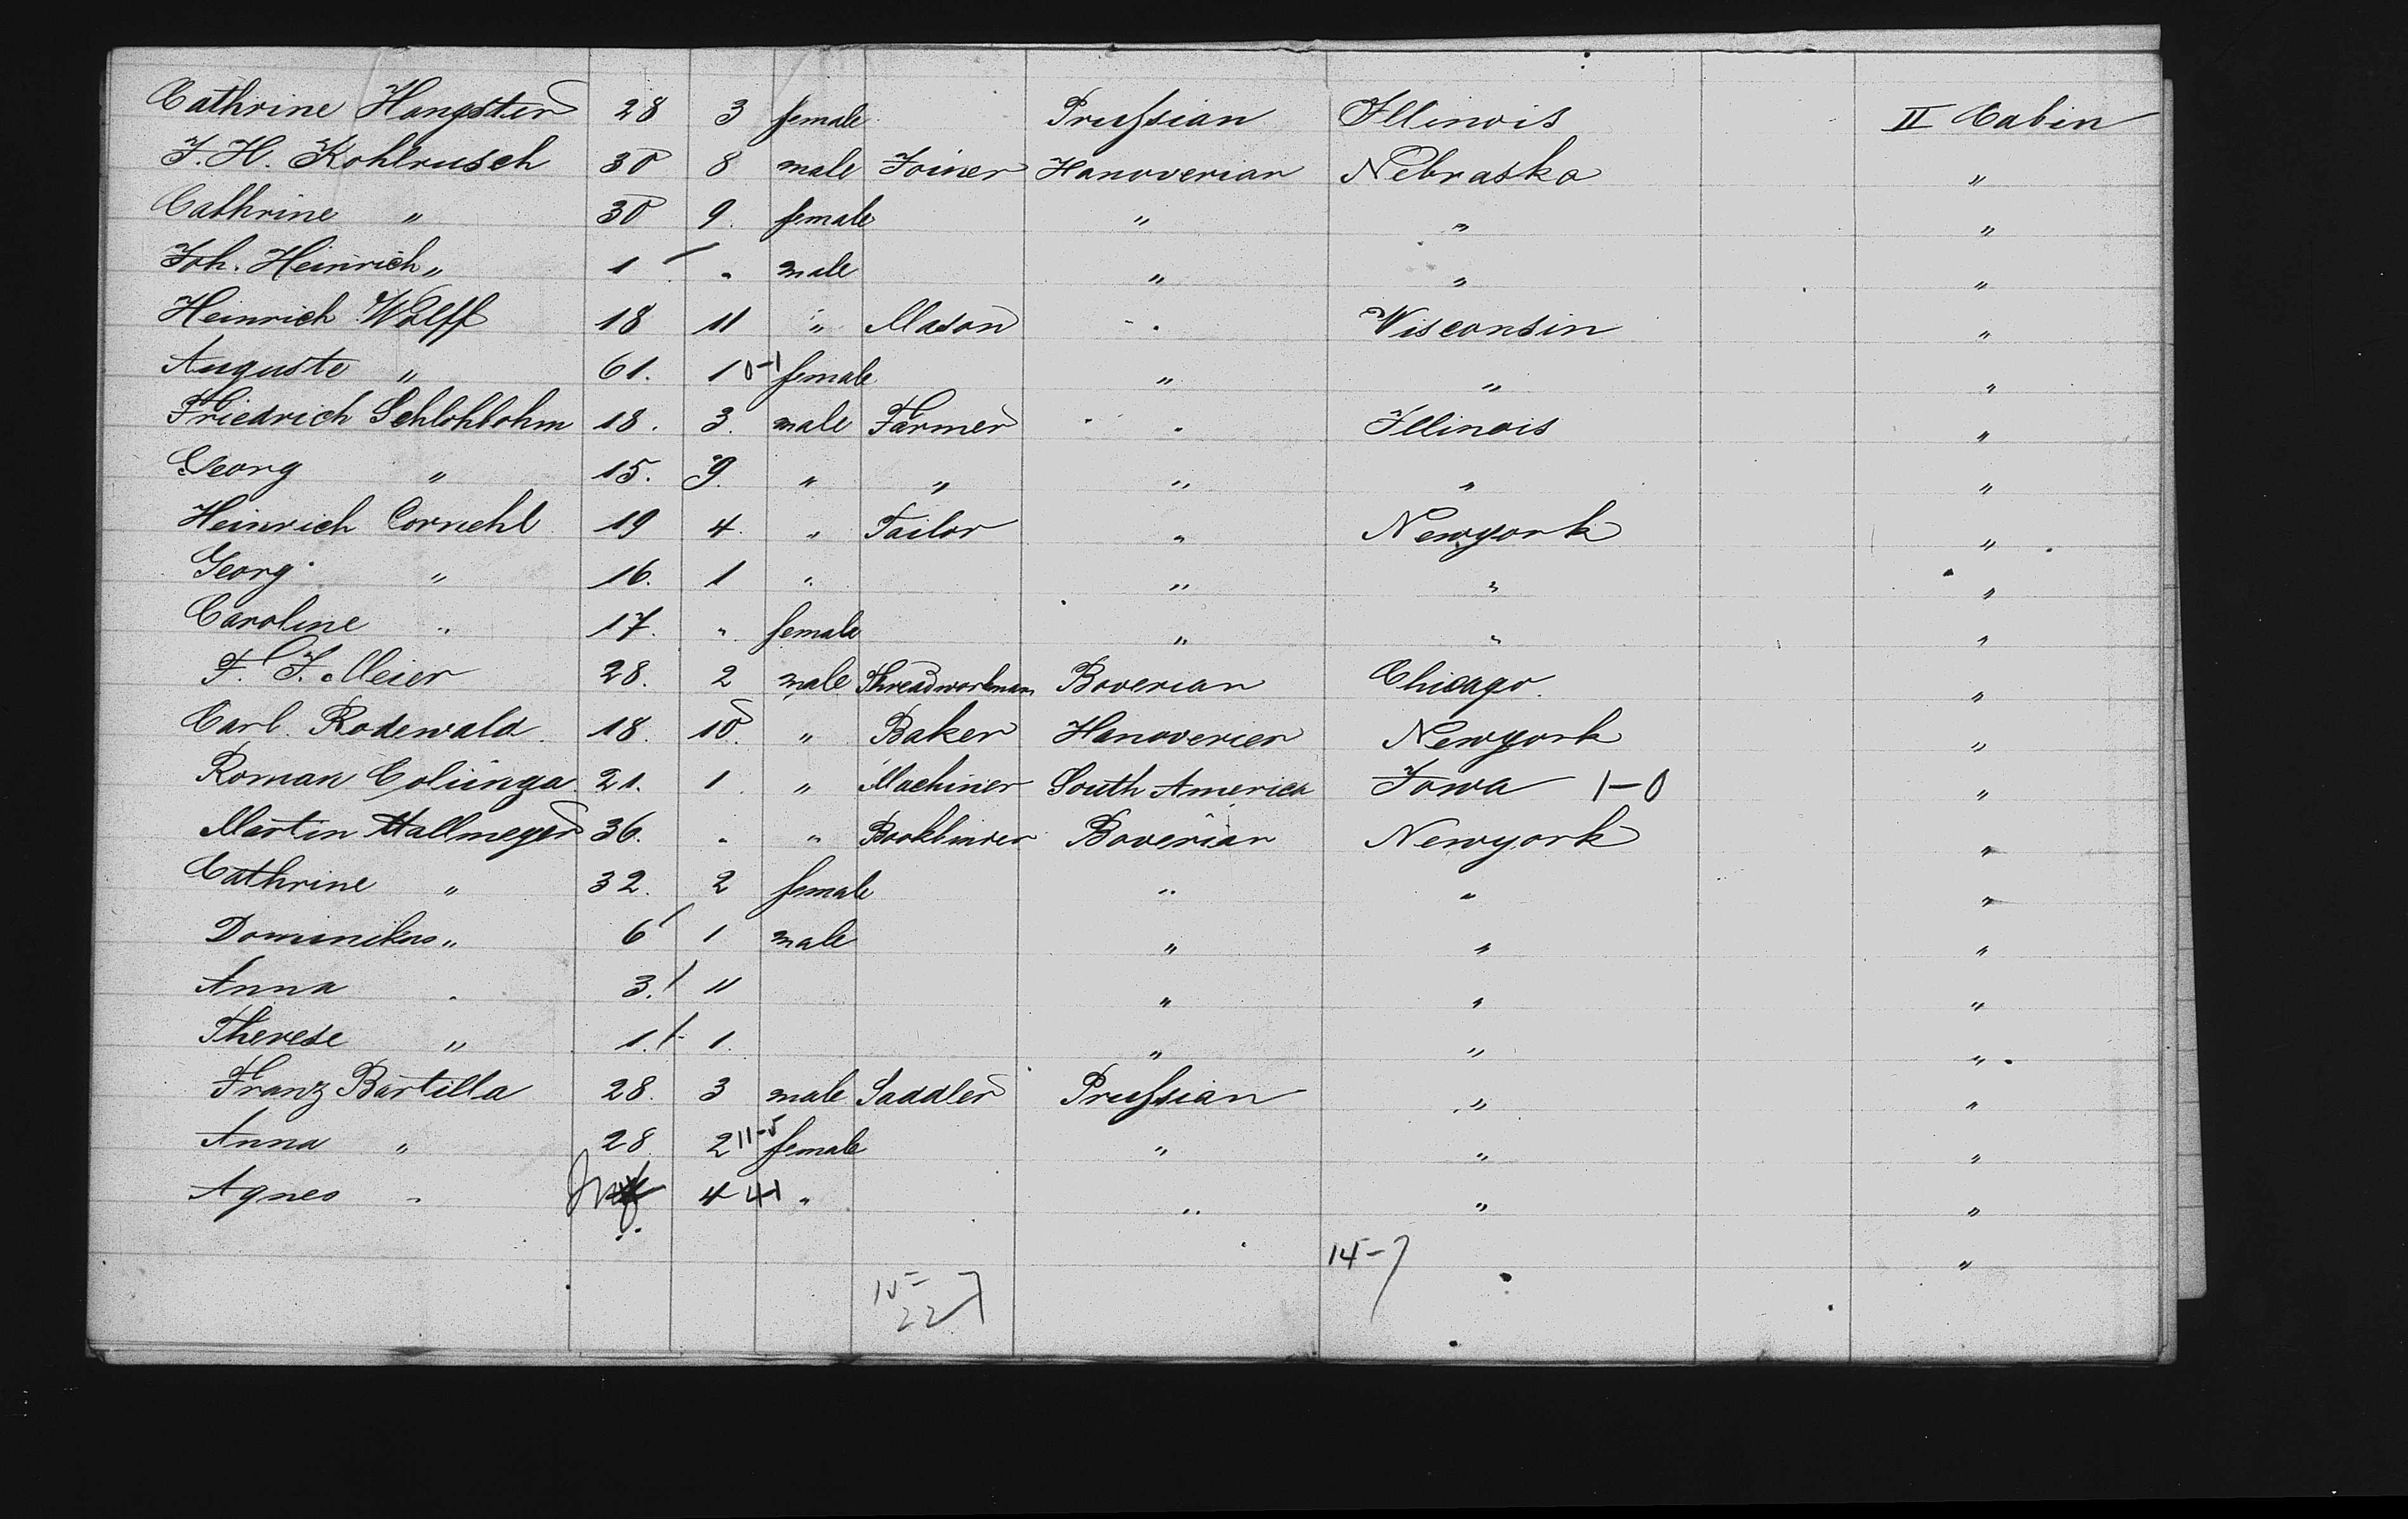 Cathrine Hangster 28 3 female Prussian Illinois II Cabin
J. H. Kohlrusch 30 8 male Joiner Hanoverian Nebraska "
Cathrine " 30 9. female " " "
Joh. Heinrich " 1 " male " " "
Heinrich Wolff 18 11 " Mason " Wisconsin "
Auguste " 61. 1 0-1 female " " "
Friedrich Schlohbohm 18. 3. male Farmer " Illinois "
Georg " 15. 9. " " " " "
Heinrich Cornehl 19 4. " Tailor " Newyork "
Georg " 16. 1 " " " "
Caroline " 17. " female " " "
F. J. Meier 28. 2 male Threadworkman Boverian Chicago. "
Carl. Rodewald. 18. 10. " Baker Hanoverien Newyork "
Roman Colunga. 21. 1. " Machiner South America Iowa 1-0 "
Martin Hallmeyer 36. " " Bookbinder Boverian Newyork "
Cathrine " 32. 2 female " " "
Dominikus " 6 1 male " " "
Anna " 3. 11 " " "
Therese " 1. 1. " " "
Franz Bartilla 28. 3 male Saddler Prussian " "
Anna " 28. 2 11-5 female " " "
Agnes " Inf 4 41 " " " "
14-7 "
15-7
22